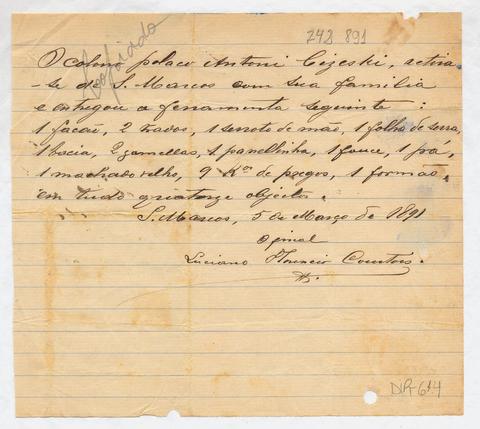 242 891
O colono polaco Antoni Cizeski, retira-
-se de S. Marcos com sua familia
e entregou a ferramenta seguinte:
1 facão, 2 trados, 1 serrote de mão, 1 folha de serra,
1 bacia, 2 gamellas, 1 panellinha, 1 fouce, 1 pá,
1 machado velho, 9 Kos de pregos, 1 formão.
em tudo quatorze objectos.
S. Marcos, 5 de Março de 1891
Luciano
DR-614